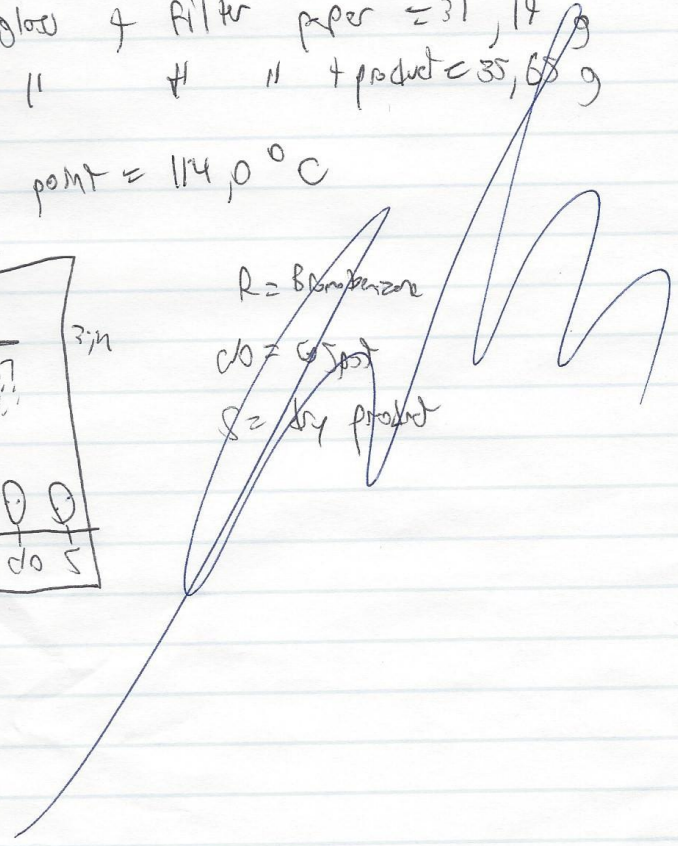 glass & filter paper = 31,14 g
" " " + product = 35,65 g
point = 114,0 °C
R = Bromobenzene
3 in
co = cospot
S = dry product
co S